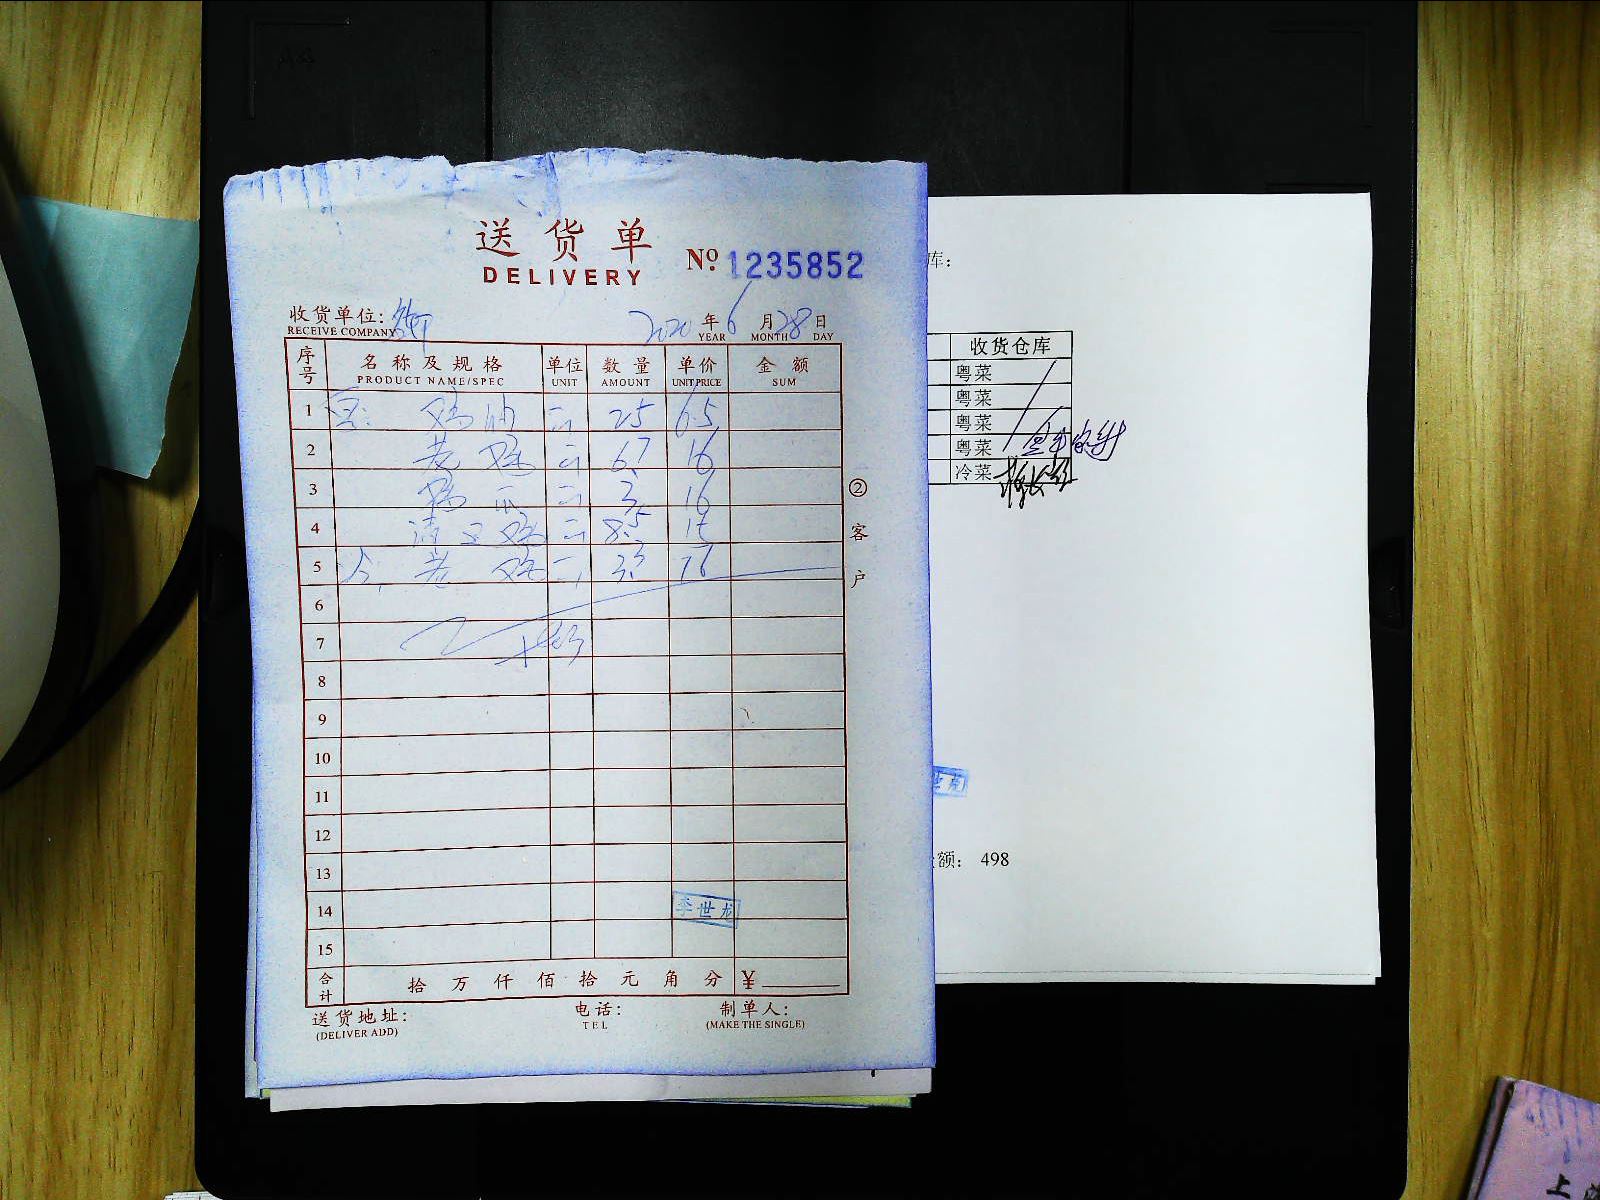 送货单
DELIVERY
Nº. 1235852
收货单位:
RECEIVE COMPANY
2020年6月28日
YEAR MONTH DAY
序号 名称及规格 单位 数量 单价 金额
PRODUCT NAME/SPEC UNIT AMOUNT UNIT PRICE SUM
1 鸡油 斤 25 6.5
2 老鸡 斤 6.7 16
3 鸡爪 斤 3 16
4 清远鸡 斤 8.5
5 老鸡 斤 3.3 16
6
7
8
9
10
11
12
13
14
15
李世龙
合计 拾万仟佰拾元角分 ¥
送货地址:
(DELIVER ADD)
电话:
TEL
制单人:
(MAKE THE SINGLE)
②客户
库:
收货仓库
粤菜
粤菜
粤菜
粤菜
冷菜
额: 498